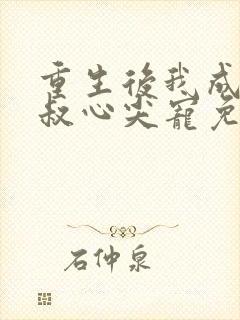 重生後我成
叔心尖寵免
石仲泉